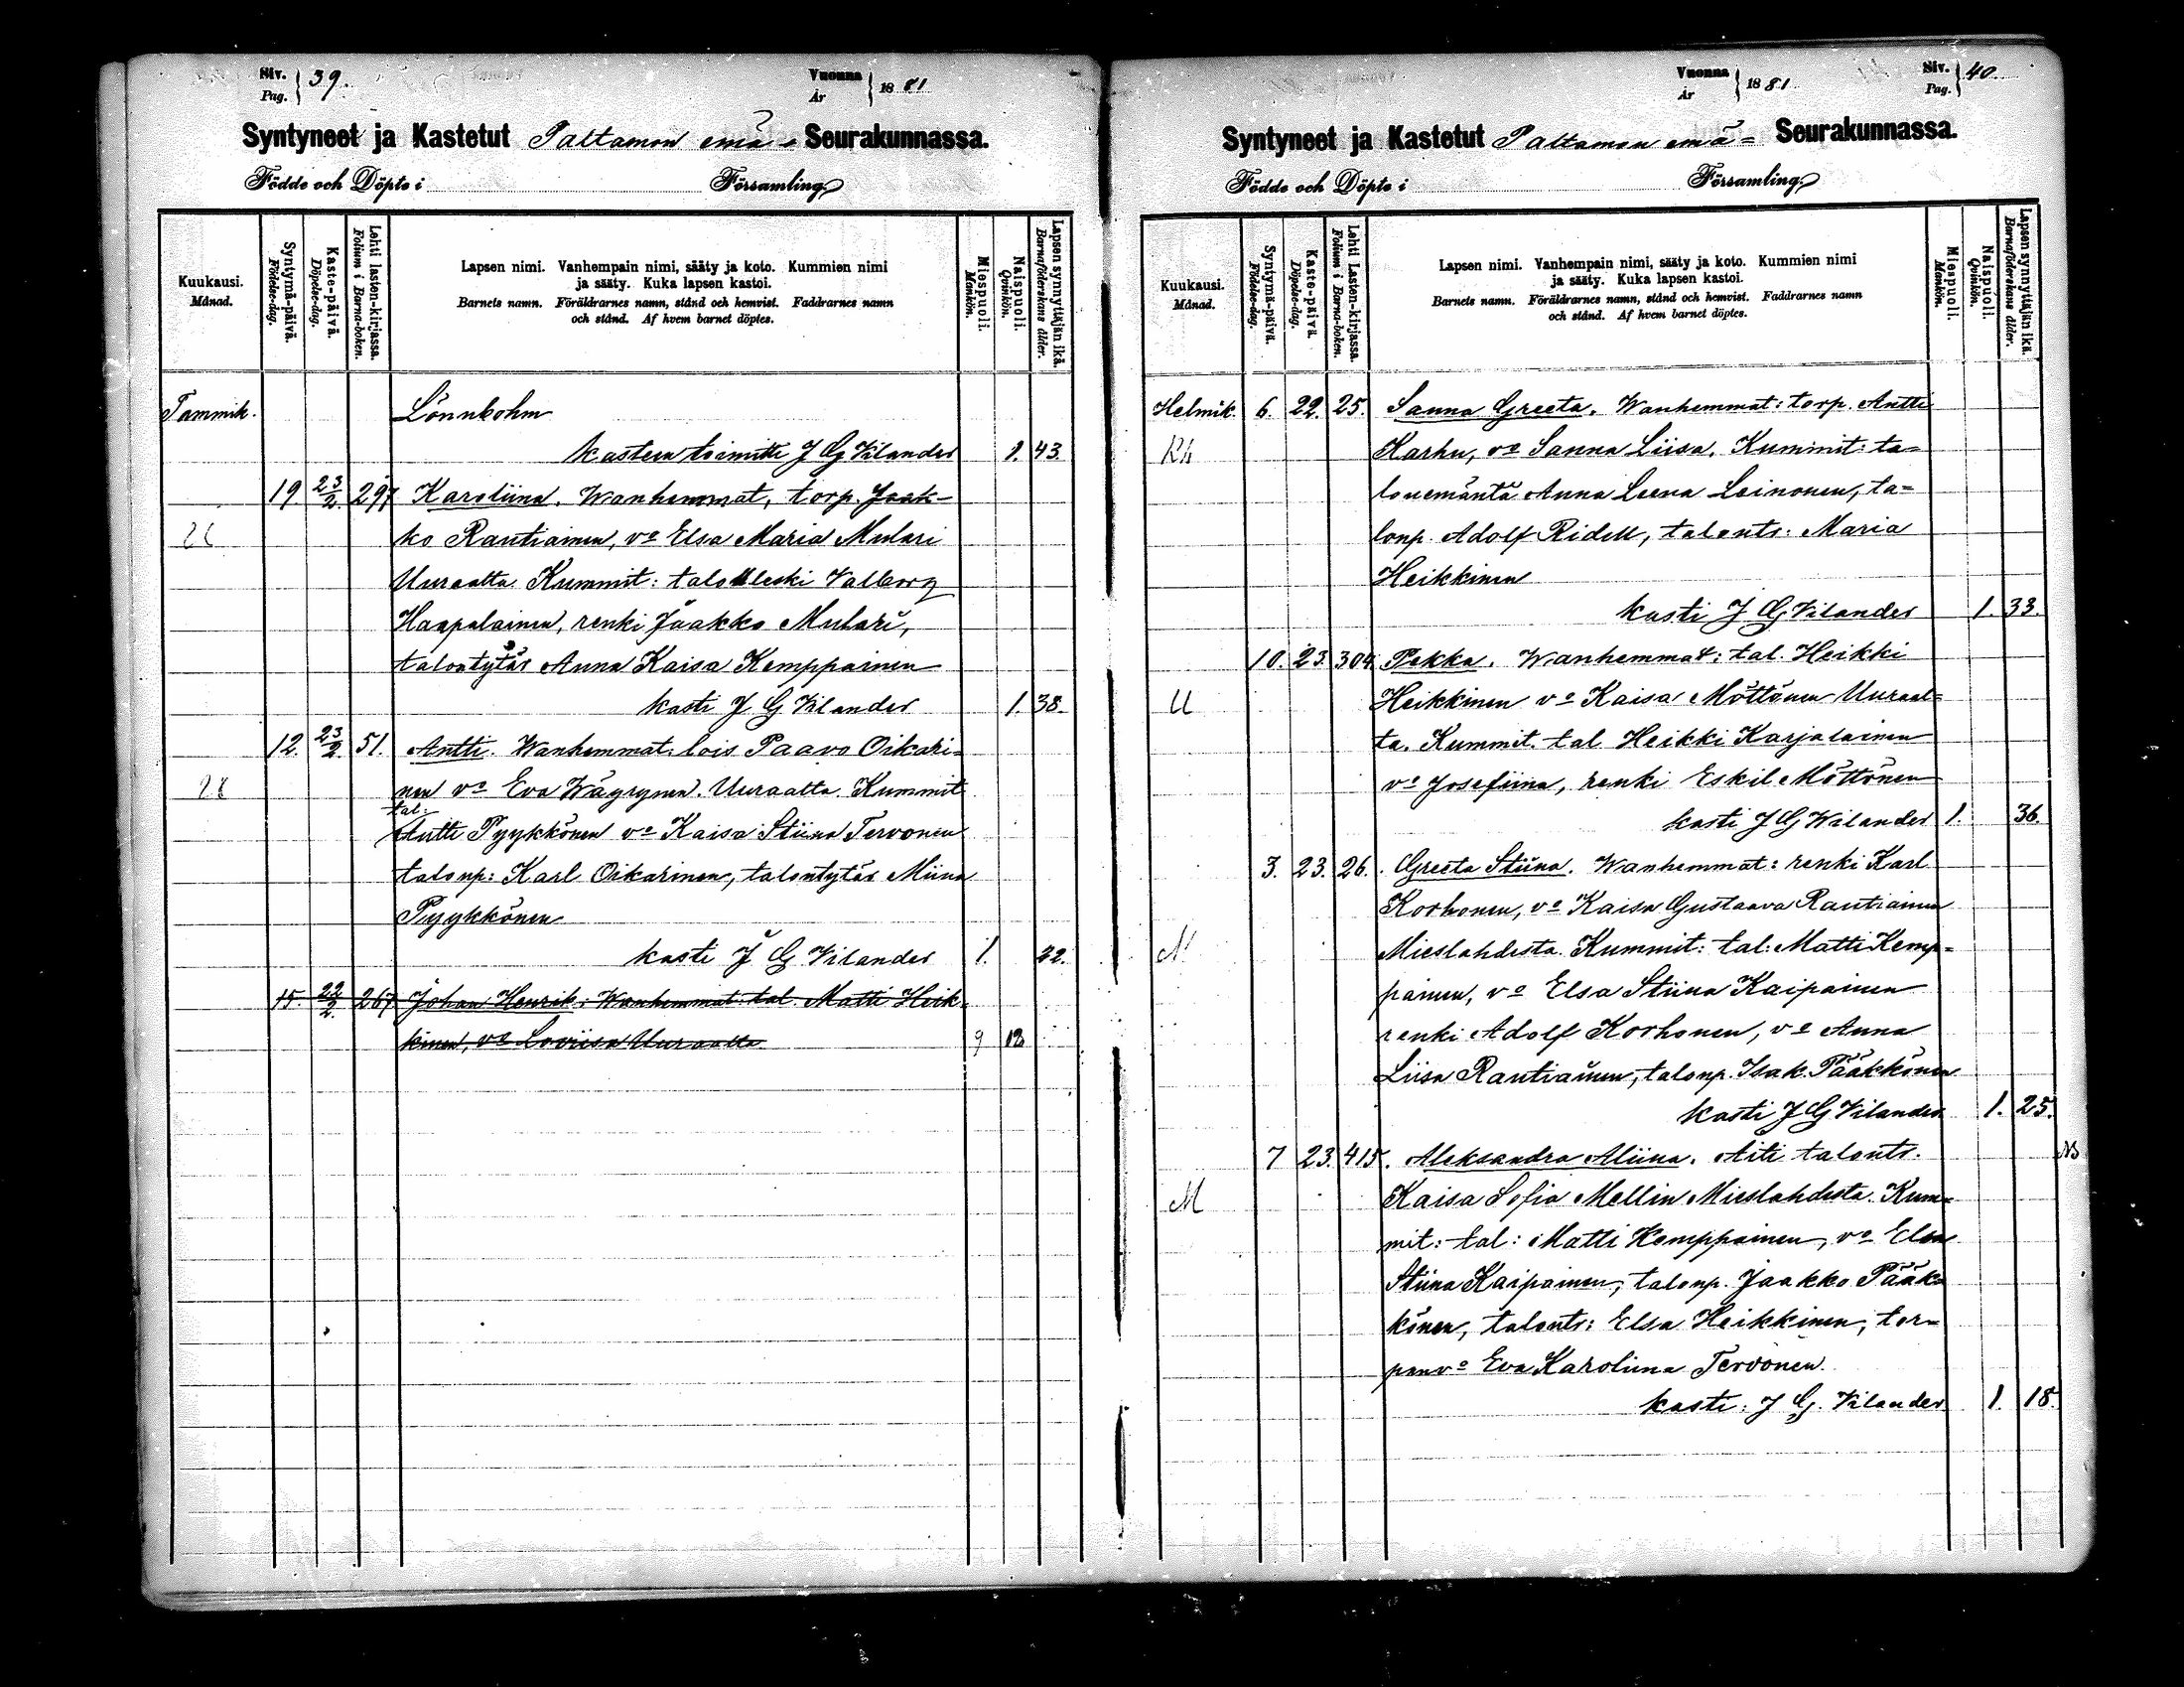 Siv. Pag. 39.
Vuonna År 1881
Syntyneet ja Kastetut Paltamon emä- Seurakunnassa.
Födde och Döpte i Församling.
Kuukausi. Månad.
Syntymä-päivä. Födelse-dag.
Kaste-päivä. Döpelse-dag.
Lehti lasten-kirjassa. Folium i Barna-boken.
Lapsen nimi. Vanhempain nimi, sääty ja koto. Kummien nimi
ja sääty. Kuka lapsen kastoi.
Barnets namn. Föräldrarnes namn, stånd och hemvist. Faddrarnes namn
och stånd. Af hvem barnet döptes.
Miespuoli. Mankön.
Naispuoli. Qvinkön.
Lapsen synnyttäjän ikä. Barnaföderskans ålder.
Tammik. Lönnbohm
kasteen toimitti J G Vilander 1. 43.
19. 23/2. 297 Karoliina. Wanhemmat, torp. Jaak-
ko Rautiainen, vo Elsa Maria Mulari
Uuraalta. Kummit: talolleski Valborg
Haapalainen, renki Jaakko Mulari,
talontytär Anna Kaisa Kemppainen
kasti J G Vilander 1. 38.
12. 23/2. 51. Antti. Wanhemmat: lois Paavo Oikari-
nen vo Eva Wäyrynen. Uuraalta. Kummit
tal:
Antti Pyykkönen vo Kaisa Stiina Tervonen
talonp: Karl Oikarinen, talontytär Miina
Pyykkönen
kasti J G Vilander 1. 22.
15. 22/2. 267 Johan Henrik. Wanhemmat: tal. Matti Heik-
kinen, vo Loviisa Uuraalta 9 12
Vuonna År 1881
Siv. Pag. 40.
Syntyneet ja Kastetut Paltamon emä- Seurakunnassa.
Födde och Döpte i Församling.
Kuukausi. Månad.
Syntymä-päivä. Födelse-dag.
Kaste-päivä. Döpelse-dag.
Lehti Lasten-kirjassa. Folium i Barna-boken.
Lapsen nimi. Vanhempain nimi, sääty ja koto. Kummien nimi
ja sääty. Kuka lapsen kastoi.
Barnets namn. Föräldrarnes namn, stånd och hemvist. Faddrarnes namn
och stånd. Af hvem barnet döptes.
Miespuoli. Mankön.
Naispuoli. Qvinkön.
Lapsen synnyttäjän ikä. Barnaföderskans ålder.
Helmik. 6. 22. 25. Sanna Greeta. Wanhemmat: torp. Antti
Karhu, vo Sanna Liisa. Kummit: ta-
lonemäntä Anna Leena Leinonen, ta-
lonp. Adolf Ridell, talonts: Maria
Heikkinen
kasti J G Vilander 1. 33.
10. 23. 304 Pekka. Wanhemmat: tal. Heikki
U Heikkinen vo Kaisa Möttönen Uuraal-
ta. Kummit. tal Heikki Karjalainen
vo Josefiina, renki Eskil Möttönen
kasti J G Wilander 1. 36.
3. 23. 26. Greeta Stiina. Wanhemmat: renki Karl
Korhonen, vo Kaisa Gustaava Rautiainen
M Mieslahdesta. Kummit: tal: Matti Kemp-
painen, vo Elsa Stiina Kaipainen
renki Adolf Korhonen, vo Anna
Liisa Rautiainen, talonp. Isak Pääkkönen
kasti J G Vilander 1. 25.
7 23. 415. Aleksandra Aliina. Äiti talonts.
M Kaisa Sofia Mellin Mieslahdesta. Kum-
mit: tal: Matti Kemppainen, vo Elsa
Stiina Kaipainen, talonp. Jaakko Pääk-
könen, talonts: Elsa Heikkinen, tor-
panvo Eva Karoliina Tervonen.
kasti: J G. Vilander 1. 18.